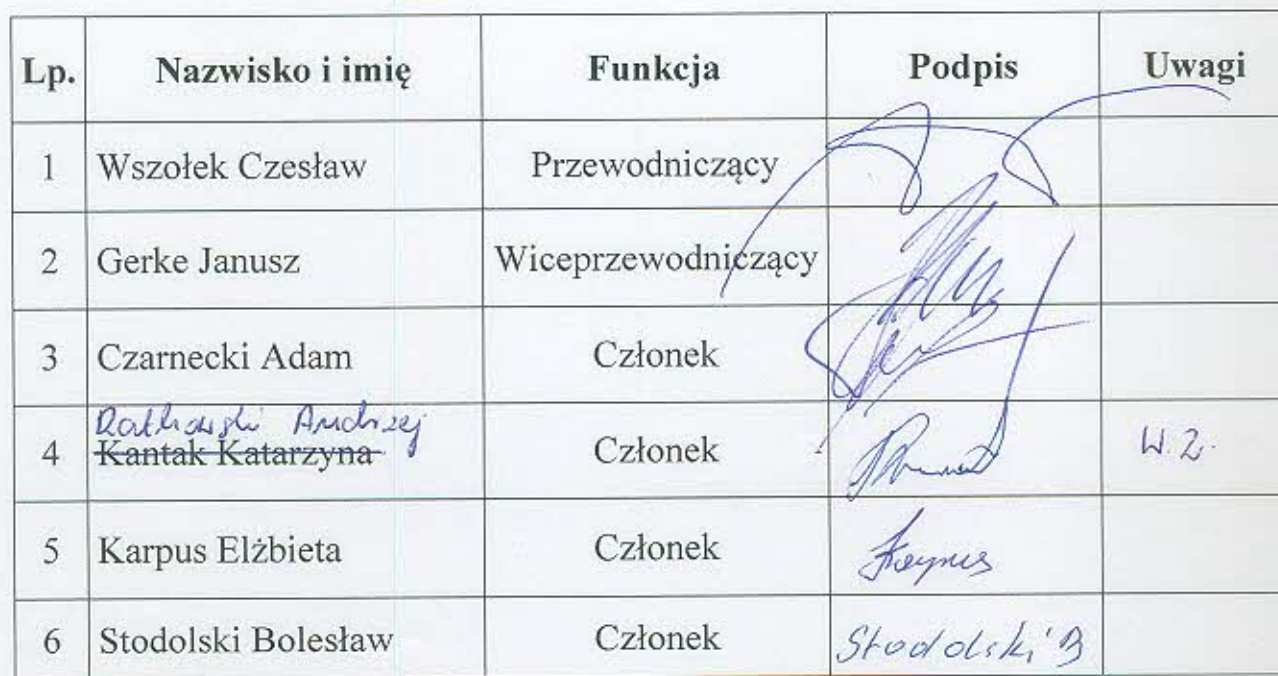 Lp. Nazwisko i imię Funkcja Podpis Uwagi
1 Wszołek Czesław Przewodniczący
2 Gerke Janusz Wiceprzewodniczący
3 Czarnecki Adam Członek
Andrzej
4 Kantak Katarzyna Członek W.Z.
5 Karpus Elżbieta Członek Karpus
6 Stodolski Bolesław Członek Stodolski B